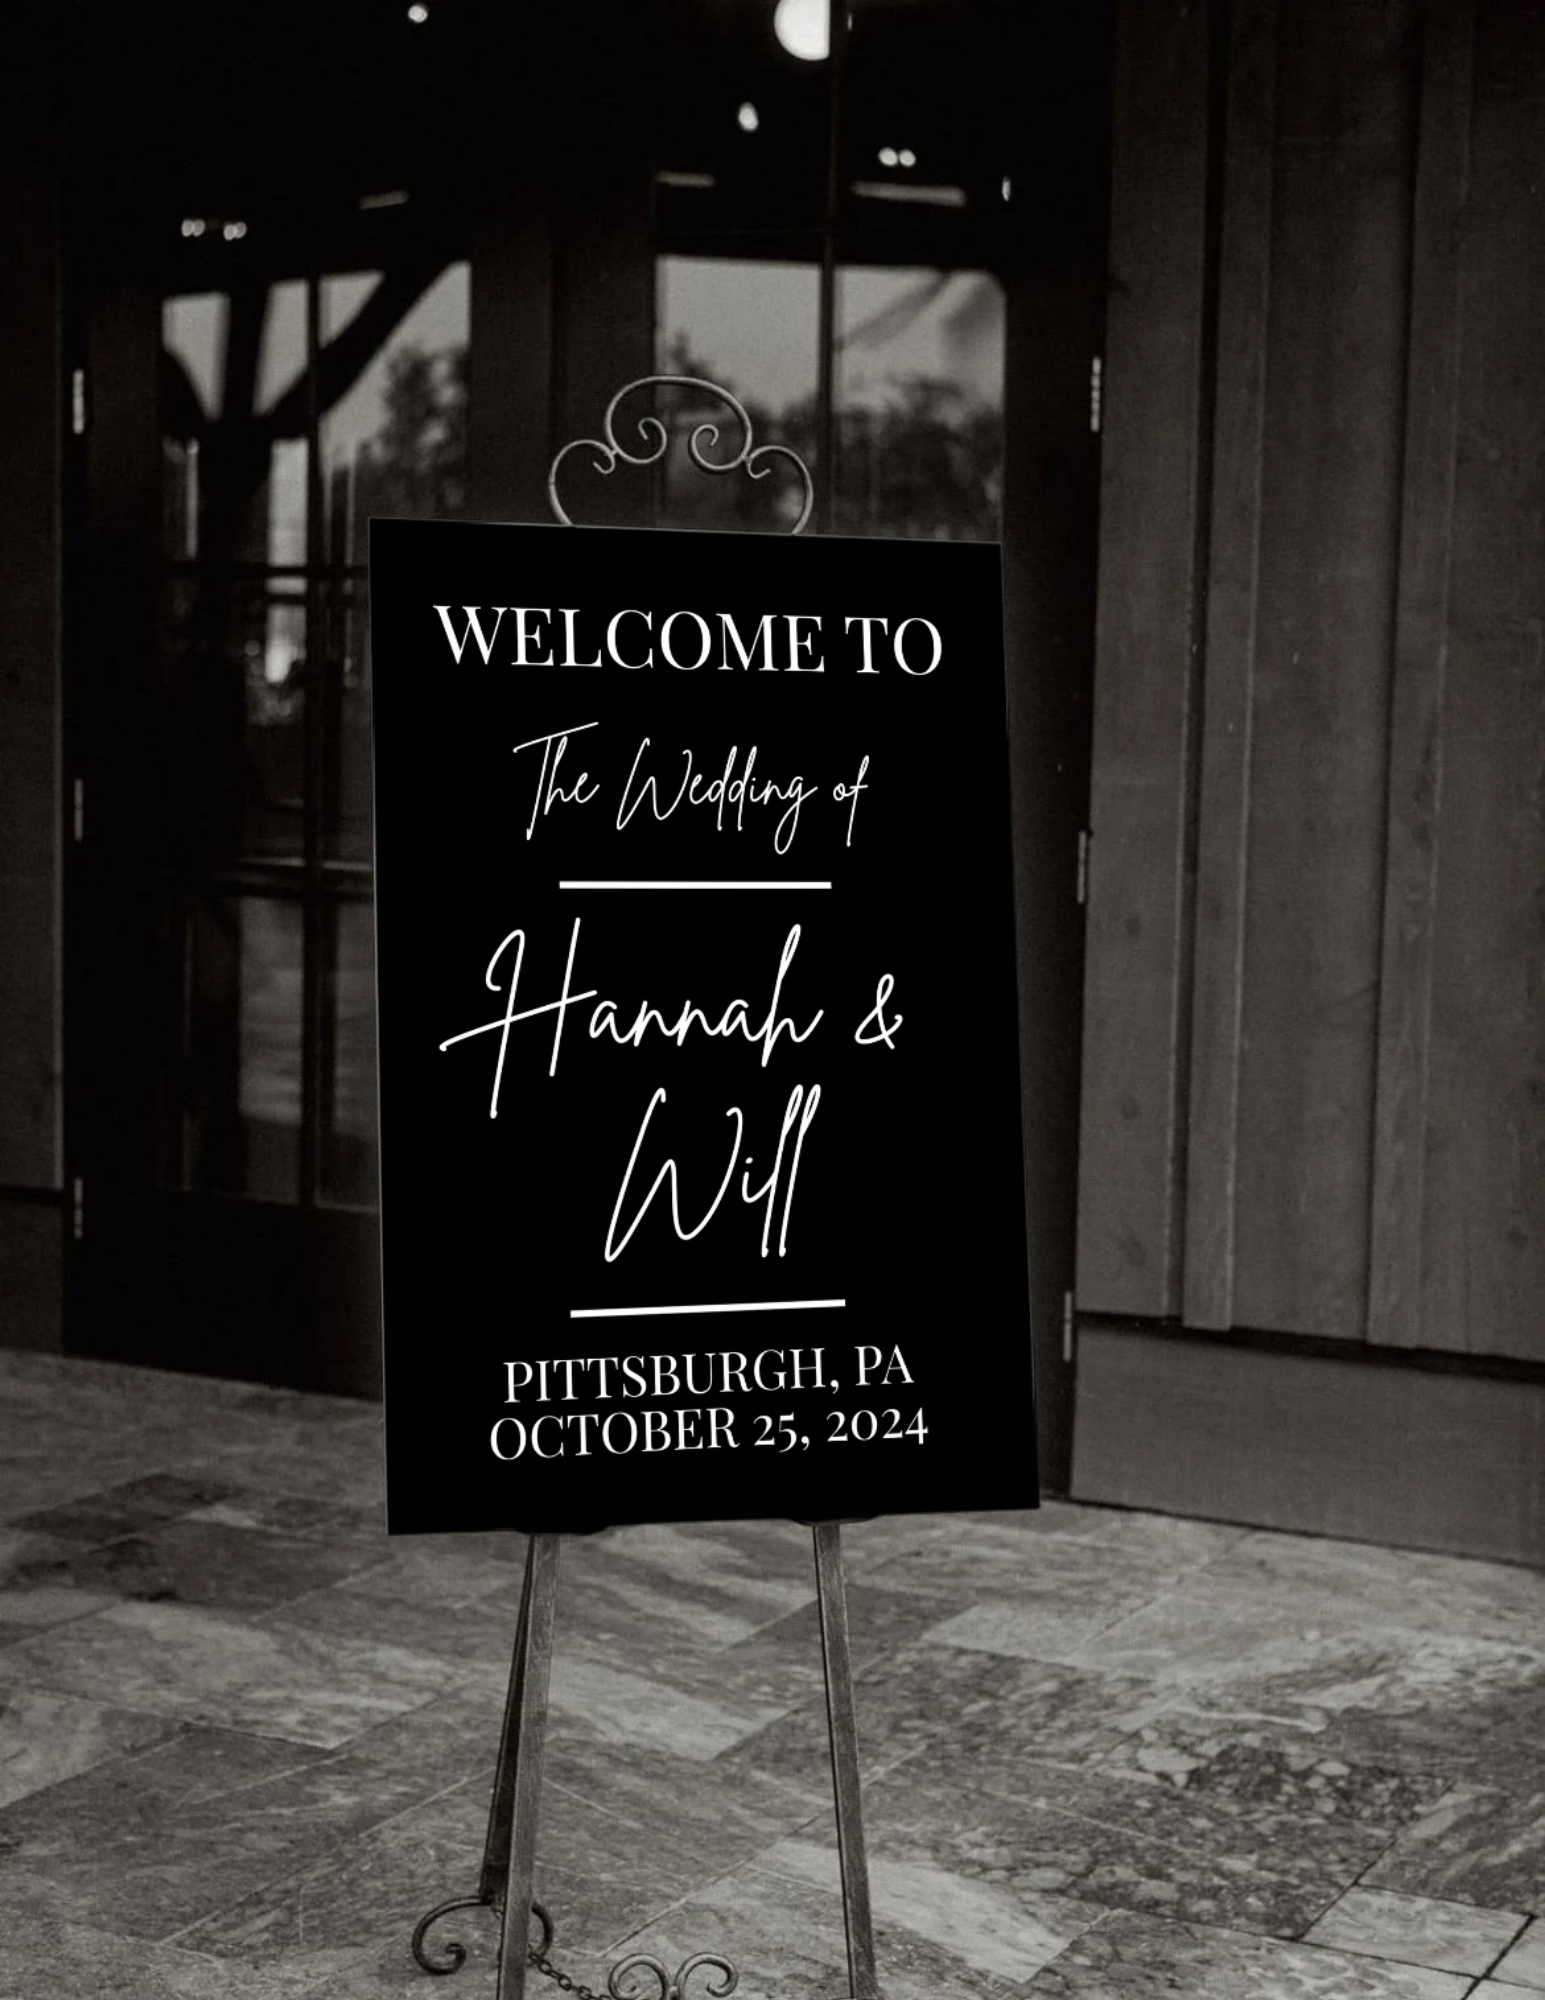 WELCOME TO
The Wedding of
Hannah &
Will
PITTSBURGH, PA
OCTOBER 25, 2024